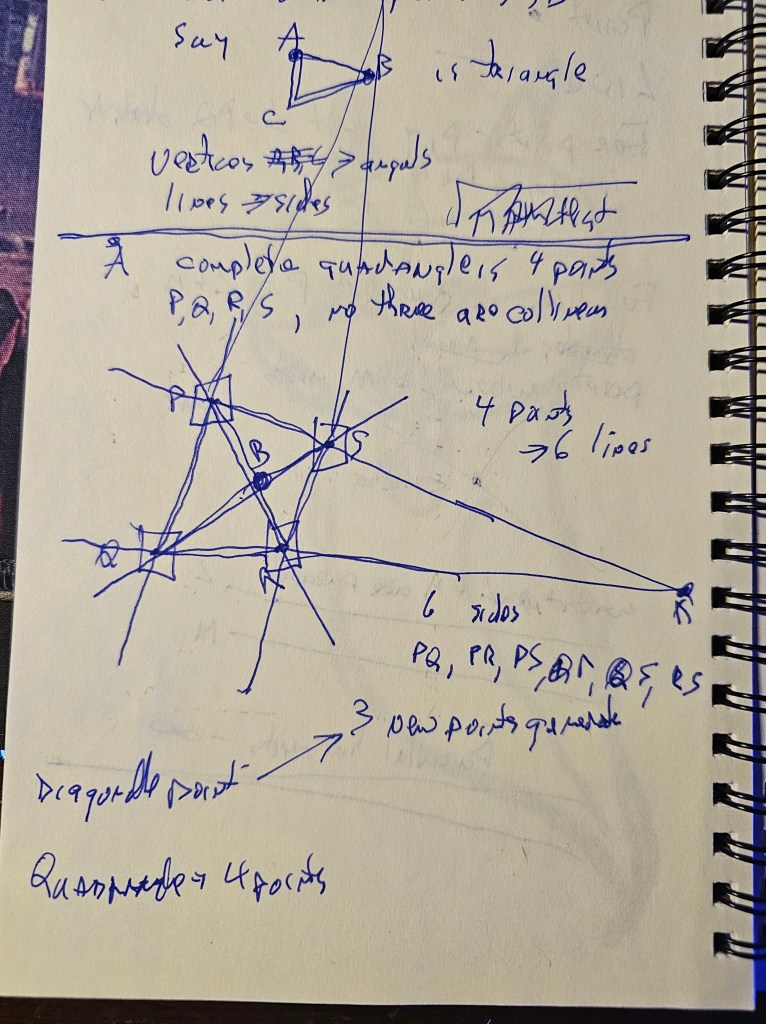 Say
A
B
is triangle
C
vertices A,B,C → anguls
lines → sides
A complete quadangle is 4 points
P, Q, R, S, no three are collinear
P
S
4 points
→ 6 lines
B
Q
R
A
6 sides
PQ, PR, PS, QR, QS, RS
3 new points generate
Diagonale point
Quadrangle → 4 points